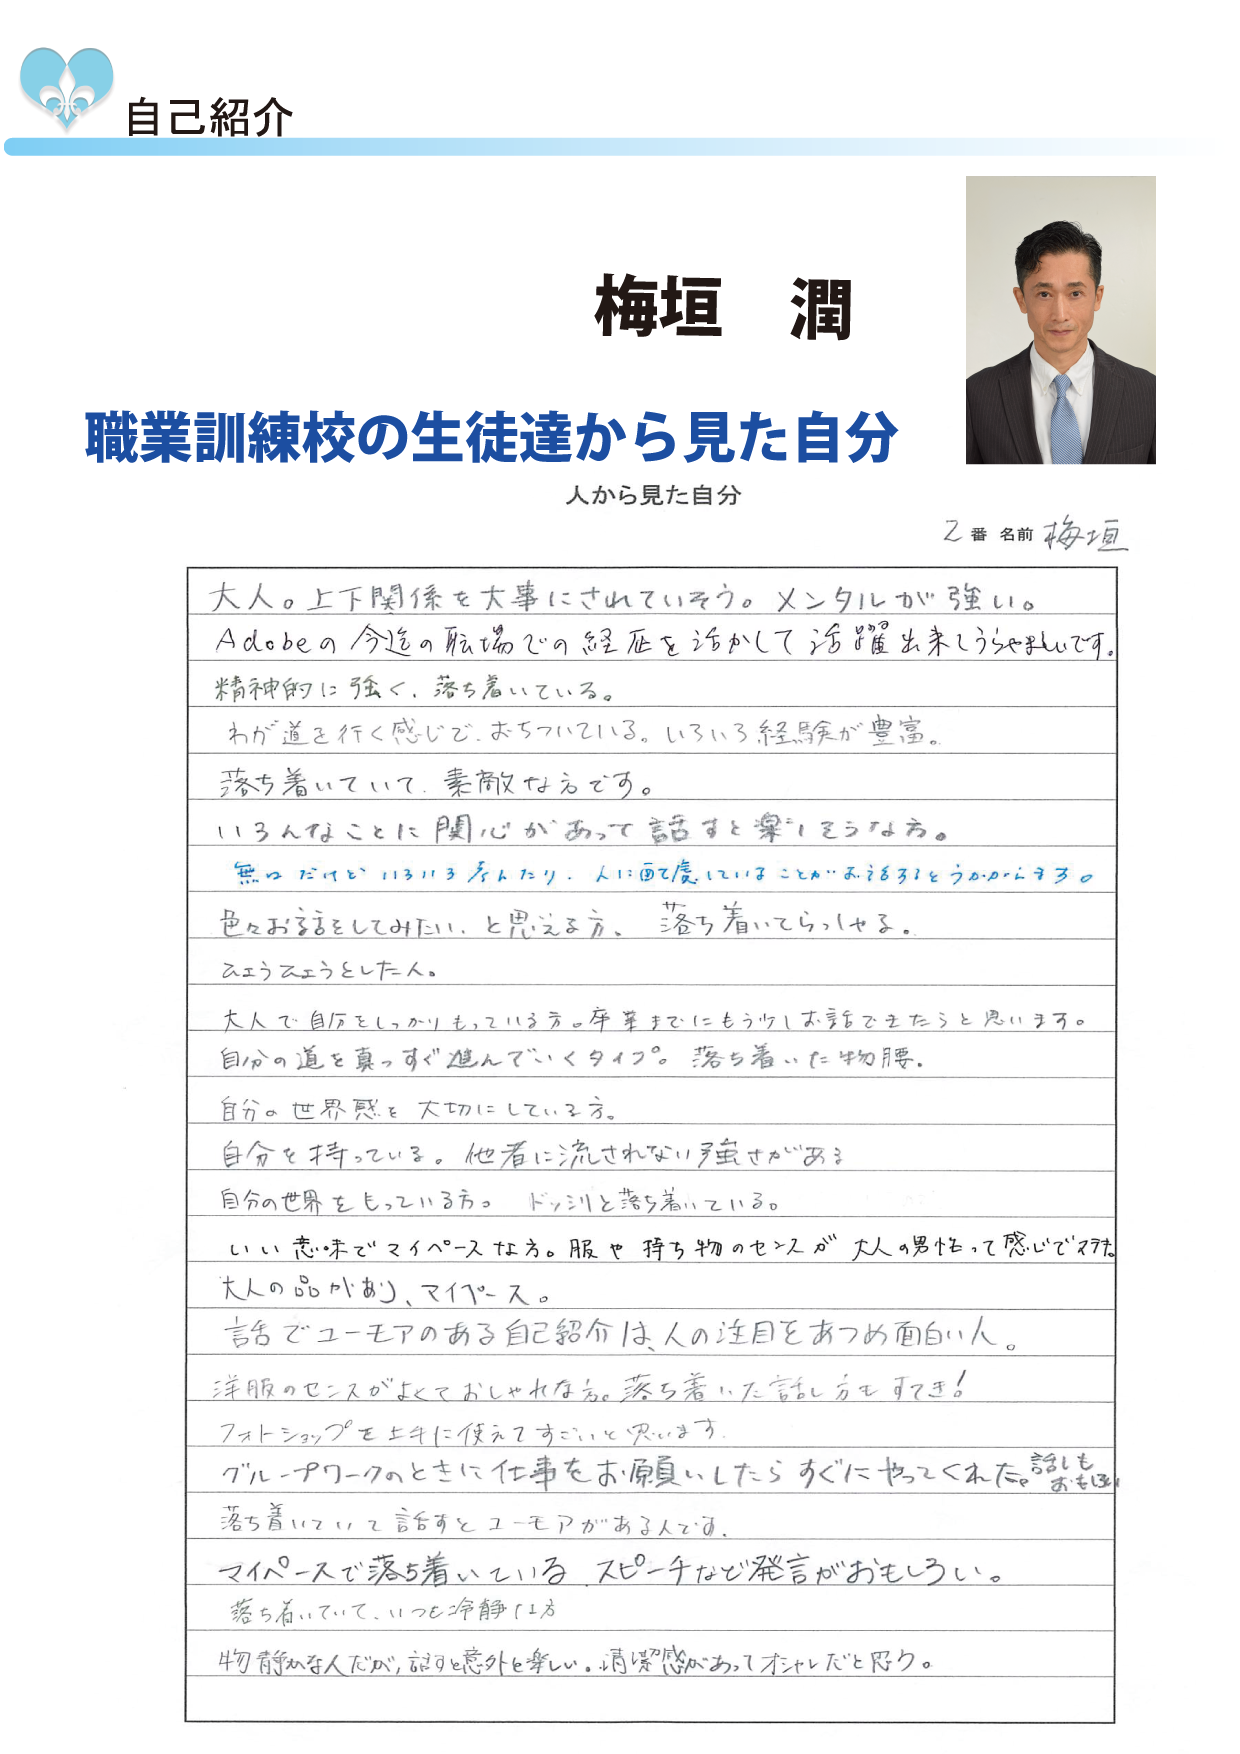 自己紹介
梅垣　潤
職業訓練校の生徒達から見た自分
人から見た自分
2番 名前 梅垣
大人。上下関係を大事にされていそう。メンタルが強い。
Adobeの今迄の職場での経歴を活かして活躍出来しうらやましいです。
精神的に強く、落ち着いている。
わが道を行く感じで、おちついている。いろいろ経験が豊富。
落ち着いていて、素敵な方です。
いろんなことに関心があって話すと楽しそうな方。
無口だけど いろいろ考えたり、人に配慮していることがお話するとうかがえます。
色々お話をしてみたい、と思える方、 落ち着いてらっしゃる。
ひょうひょうとした人。
大人で自分をしっかりもっている方。卒業までにもう少しお話できたらと思います。
自分の道を真っすぐ進んでいくタイプ。落ち着いた物腰。
自分の世界感を大切にしている方。
自分を持っている。他者に流されない強さがある
自分の世界をもっている方。 ドッシリと落ち着いている。
いい意味でマイペースな方。服や持ち物のセンスが大人の男性って感じでステキ。
大人の品があり、マイペース。
話でユーモアのある自己紹介は、人の注目をあつめ面白い人。
洋服のセンスがよくておしゃれな方。落ち着いた話し方もすてき!
フォトショップを上手に使えてすごいと思います。
グループワークのときに仕事をお願いしたらすぐにやってくれた。話しもおもしろい
落ち着いていて話すとユーモアがある人です。
マイペースで落ち着いている スピーチなど発言がおもしろい。
落ち着いていて、いつも冷静な方
物静かな人だが、話すと意外と楽しい。清潔感があってオシャレだと思う。